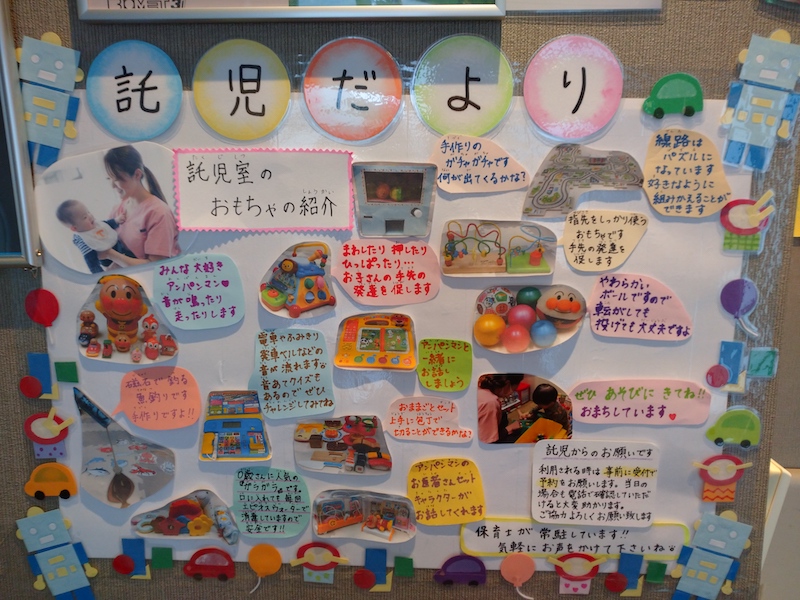 託児だより
託児室の
おもちゃの紹介
手作りの
ガチャガチャです
何が出てくるかな?
線路は
パズルに
なっています
好きなように
組みかえることが
できます
指先をしっかり使う
おもちゃです
手先の発達を
促します
みんな大好き
アンパンマン♥
音が鳴ったり
走ったりします
まわしたり 押したり
ひっぱったり…
お子さんの手先の
発達を促します
やわらかい
ボールですので
転がしても
投げても大丈夫ですよ
電車やふみきり
発車ベルなどの
音が流れます♪
音あてクイズも
あるのでぜひ
チャレンジしてみてね
アンパンマンと
一緒に
お話し
しましょう
磁石で釣る
魚釣りです
手作りですよ!!
おままごとセット
上手に包丁で
切ることができるかな?
ぜひ あそびに きてね!!
おまちしています♥
0歳さんに人気の
"ガラガラ"です。
口に入れても毎回
エピオスウォーターで
消毒していますので
安全です!!
アンパンマンの
お着替えセット
キャラクターが
お話してくれます
託児からのお願いです
利用される時は事前に受付で
予約をお願いします。当日の
場合も電話で確認していただ
けると大変助かります。
ご協力よろしくお願い致します
保育士が常駐しています!!
気軽にお声をかけて下さいね